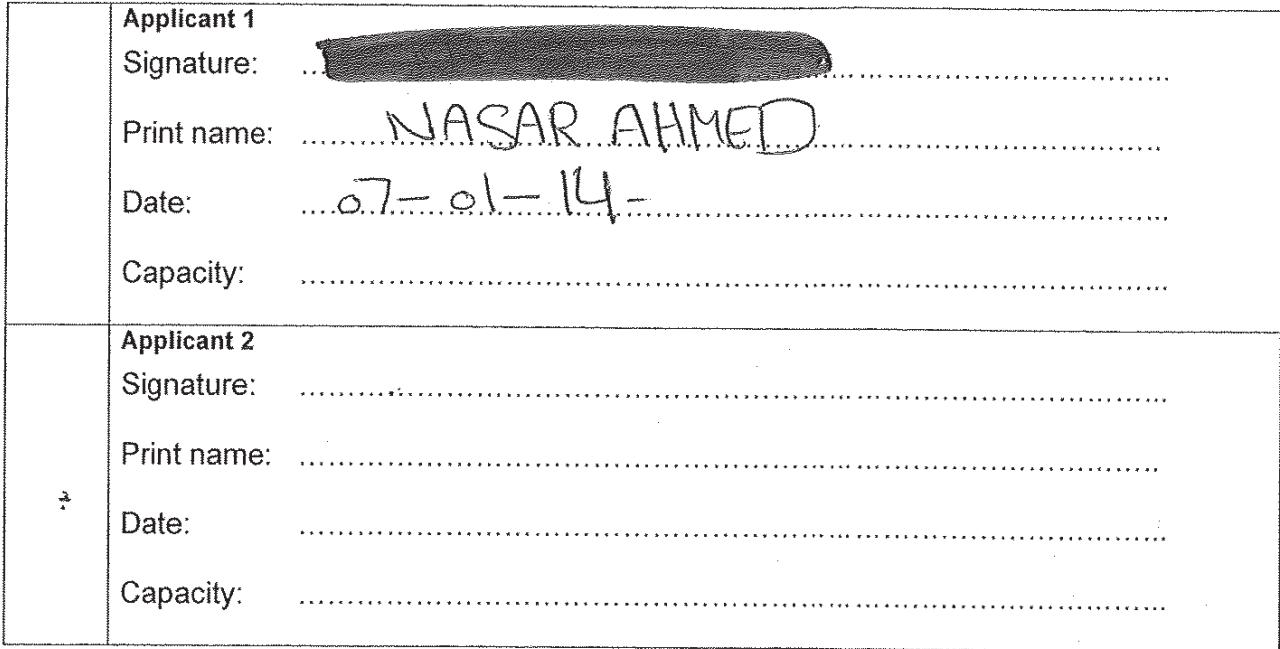 Applicant 1
Signature:
Print name: NASAR AHMED
Date: 07-01-14-
Capacity:
Applicant 2
Signature:
Print name:
Date:
Capacity: